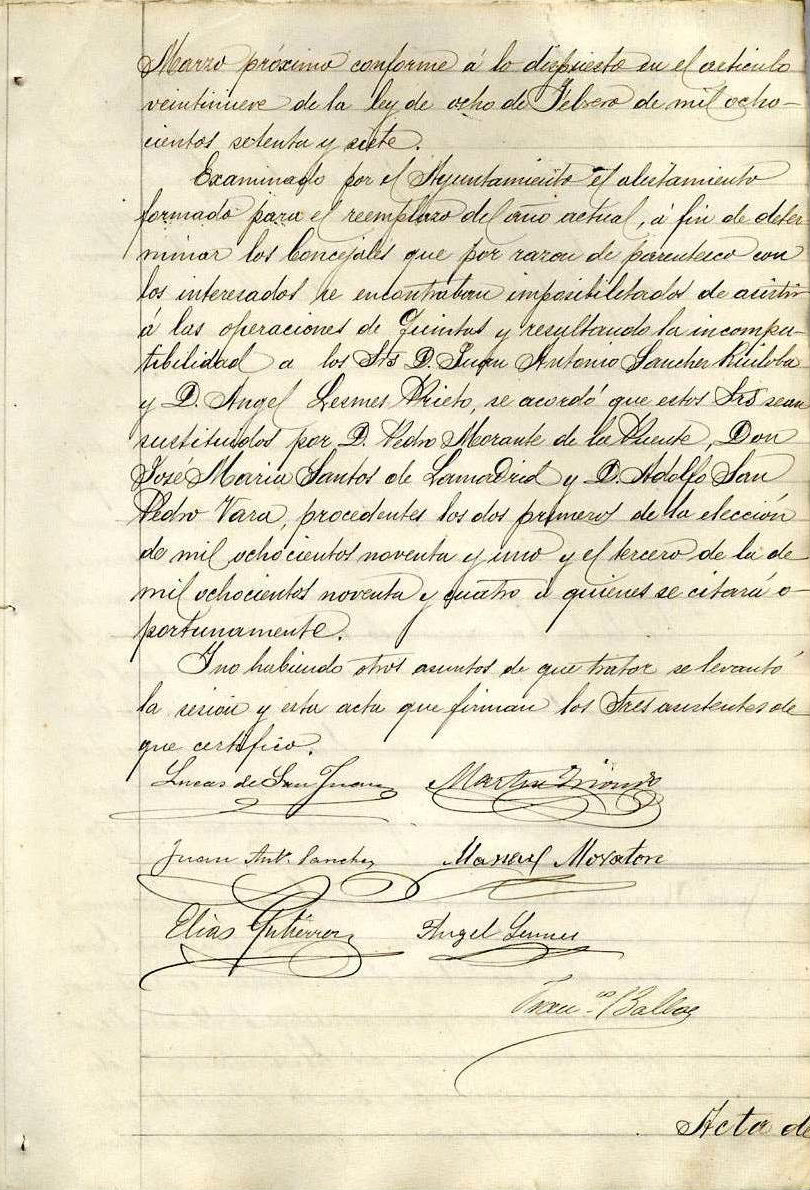 Marzo próximo conforme á lo dispuesto en el articulo
veintinueve de la ley de ocho de Febrero de mil ocho-
cientos setenta y siete.
Examinado por el Ayuntamiento el alistamiento
formado para el reemplazo del año actual, á fin de deter
minar los Concejales que por razon de parentesco con
los interesados se encontraban imposibilitados de asistir
á las operaciones de Quintas y resultando la incompa-
tibilidad a los Srs D. Juan Antonio Sanchez Ruiloba
y D. Angel Lesmes Prieto, se acordó que estos Srs sean
sustituidos por D. Pedro Morante de la Puente, Don
José Maria Santos de Lamadrid y D. Adolfo San
Pedro Vara, procedentes los dos primeros de la elección
de mil ochocientos noventa y uno y el tercero de la de
mil ochocientos noventa y cuatro a quienes se citará o-
portunamente.
Y no habiendo otros asuntos de que tratar se levantó
la sesion y esta acta que firman los Sres asistentes de
que certifico.
Lucas de San Juan Martin
Juan Ant.º Sanchez Manuel
Elias Gutiérrez Angel Lesmes
Fran.co
Acta de